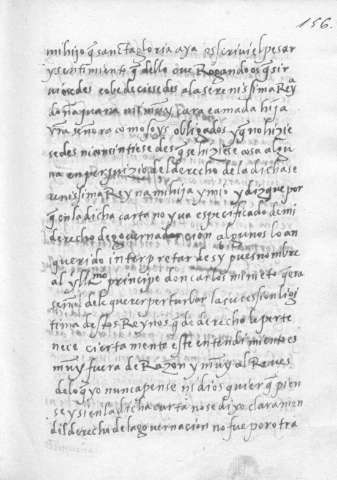 156.
mi hijo q̃ sancta gloria aya os escrivi el pesar
y sentimiento q̃ dello ove Rogando os q̃ sir
viesedes e obedeciesedes a la serenisima Reyª
doña juana mi muy cara e amada hija
vr̃a señora como soys obligados y q̃ no hizie
sedes ni consintiesedes q̃ se hiziese cosa algu
na en perjuizio del derecho de la dicha se
renisima Reyna mi hija y mio y diz que por
q̃ en la dicha carta no yva especificado de mi
derecho de governacion algunos lo an
querido interpretar desy pues nombre
al yll mo principe don carlos mi nieto q̃ era
señal de querer perturbar la sucesion ligi
tima destos Reynos q̃ de derecho le perte
nece cierta mente este entendimiento es
muy fuera de Razon y muy al Reves
de lo q̃ yo nunca pense ni dios quiera q̃ pien
se y si en la dicha carta no se dixo claramen
te del derecho de la governacion no fue por otra